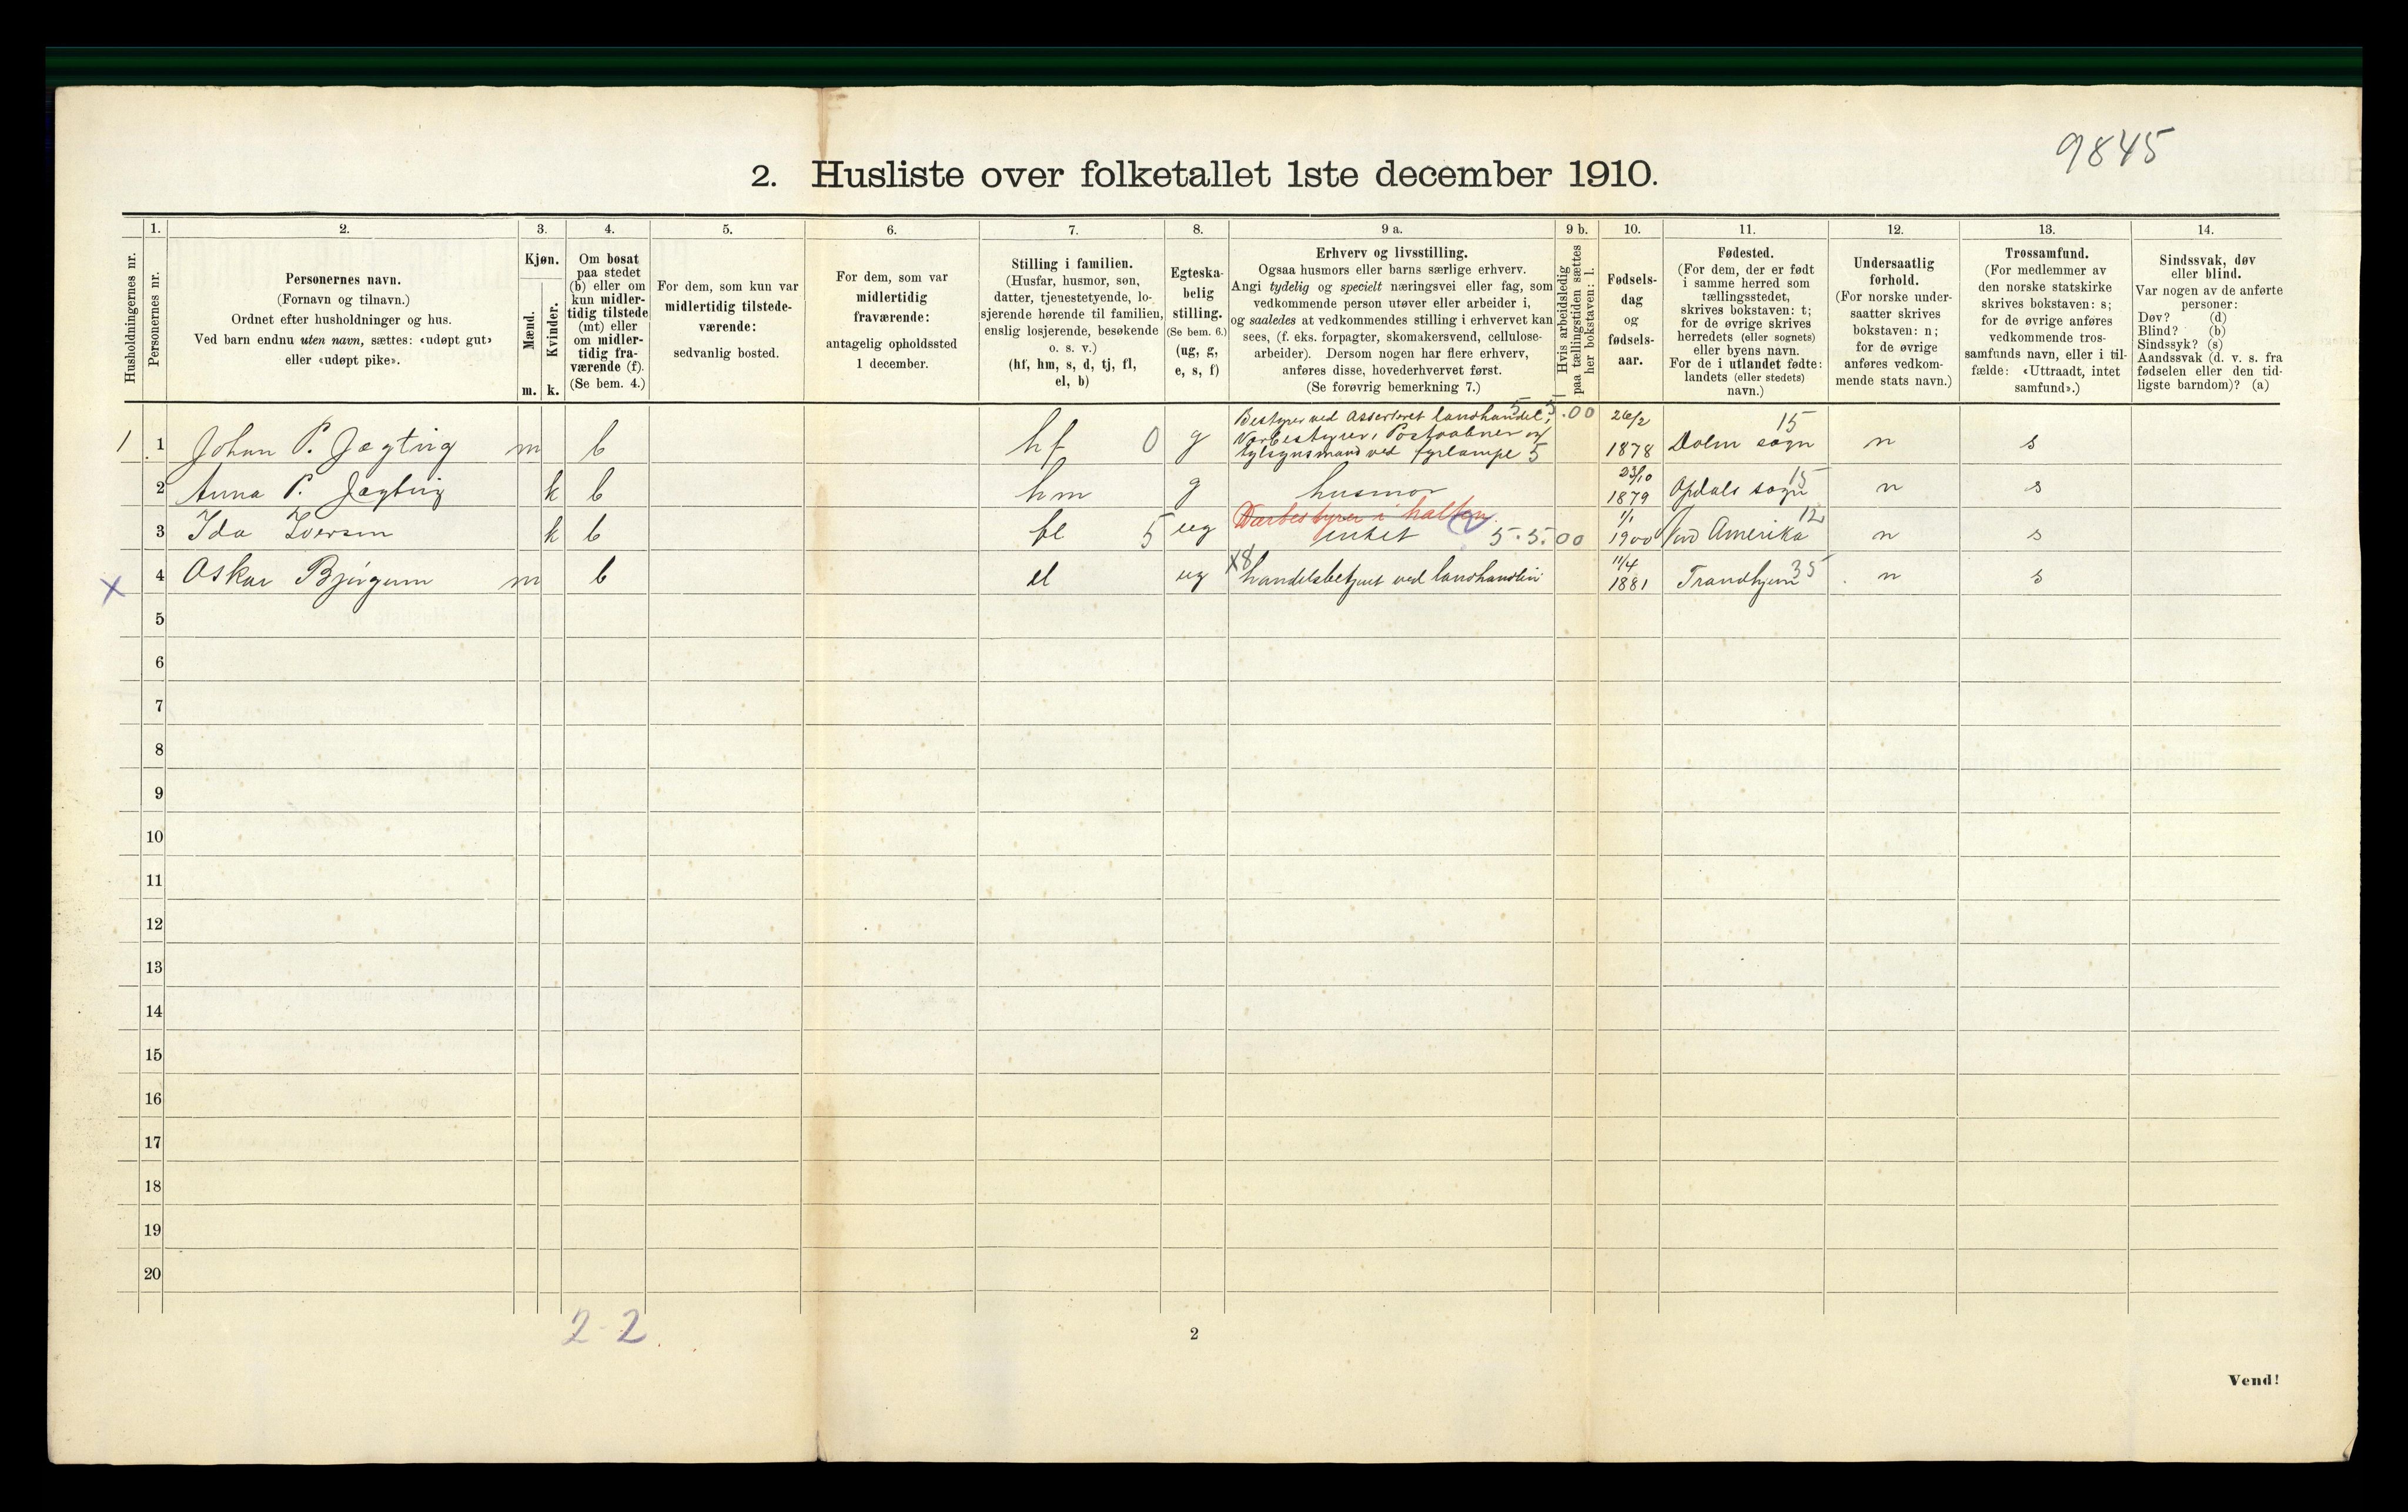 9845
2. Husliste over folketallet 1ste december 1910.
Husholdningernes nr.
1.
Personernes nr.
2.
Personernes navn.
(Fornavn og tilnavn.)
Ordnet efter husholdninger og hus.
Ved barn endnu uten navn, sættes: «udøpt gut»
eller «udøpt pike».
3.
Kjøn.
Mænd.
Kvinder.
m. k.
4.
Om bosat
paa stedet
(b) eller om
kun midler-
tidig tilstede
(mt) eller
om midler-
tidig fra-
værende (f).
(Se bem. 4.)
5.
For dem, som kun var
midlertidig tilstede-
værende:
sedvanlig bosted.
6.
For dem, som var
midlertidig
fraværende:
antagelig opholdssted
1 december.
7.
Stilling i familien.
(Husfar, husmor, søn,
datter, tjenestetyende, lo-
sjerende hørende til familien,
enslig losjerende, besøkende
o. s. v.)
(hf, hm, s, d, tj, fl,
el, b)
8.
Egteska-
belig
stilling.
(Se bem. 6.)
(ug, g,
e, s, f)
9 a.
Erhverv og livsstilling.
Ogsaa husmors eller barns særlige erhverv.
Angi tydelig og specielt næringsvei eller fag, som
vedkommende person utøver eller arbeider i,
og saaledes at vedkommendes stilling i erhvervet kan
sees, (f. eks. forpagter, skomakersvend, cellulose-
arbeider). Dersom nogen har flere erhverv,
anføres disse, hovederhvervet først.
(Se forøvrig bemerkning 7.)
9 b.
Hvis arbeidsledig
paa tællingstiden sættes
her bokstaven: l.
10.
Fødsels-
dag
og
fødsels-
aar.
11.
Fødested.
(For dem, der er født
i samme herred som
tællingsstedet,
skrives bokstaven: t;
for de øvrige skrives
herredets (eller sognets)
eller byens navn.
For de i utlandet fødte:
landets (eller stedets)
navn.)
12.
Undersaatlig
forhold.
(For norske under-
saatter skrives
bokstaven: n;
for de øvrige
anføres vedkom-
mende stats navn.)
13.
Trossamfund.
(For medlemmer av
den norske statskirke
skrives bokstaven: s;
for de øvrige anføres
vedkommende tros-
samfunds navn, eller i til-
fælde: «Uttraadt, intet
samfund».)
14.
Sindssvak, døv
eller blind.
Var nogen av de anførte
personer:
Døv? (d)
Blind? (b)
Sindssyk? (s)
Aandssvak (d. v. s. fra
fødselen eller den tid-
ligste barndom)? (a)
1 1 Johan P. Jægtvig m b hf 0 g Bestyrer ved Assorteret landhandel, 5 .00
Varbestyrer, Postaabner og
tylsynsmand ved fyrlampe 5 26/2 1878 Dolm sogn 15 n s
2 Anna P. Jægtvig k b hm g husmor 23/10 1879 Opdals sogn 15 n s
Varbestyrer i halten
3 Ida Iversen k b fl 5 ug intet 5.5.00 1/1 1900 Nord Amerika 12 n s
x 4 Oskar Bjørgum m b el ug x8 handelsbetjent ved landhandleri 11/4 1881 Trondhjem 35 n s
5
6
7
8
9
10
11
12
13
14
15
16
17
18
19
20
2-2
2
Vend!